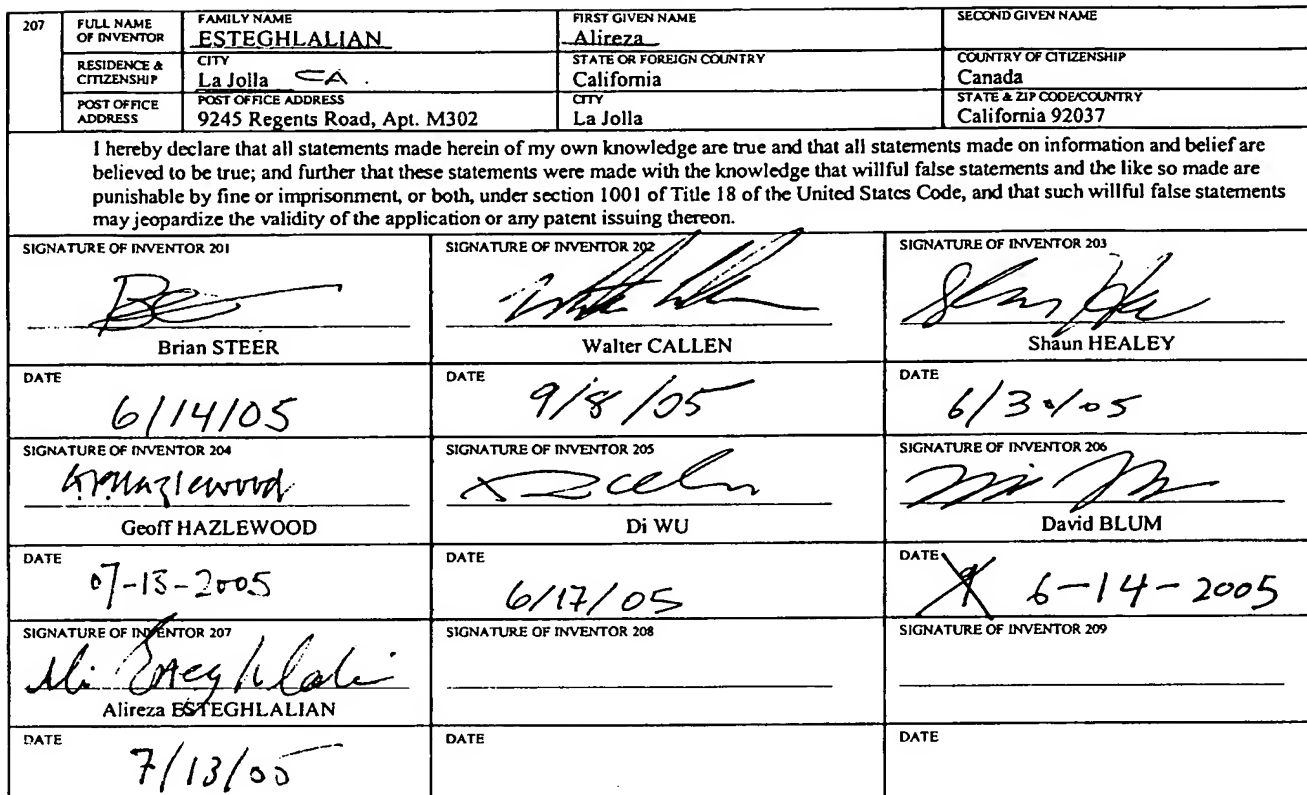 207 FULL NAME OF INVENTOR FAMILY NAME ESTEGHLALIAN FIRST GIVEN NAME Alireza SECOND GIVEN NAME
RESIDENCE & CITIZENSHIP CITY La Jolla CA . STATE OR FOREIGN COUNTRY California COUNTRY OF CITIZENSHIP Canada
POST OFFICE ADDRESS POST OFFICE ADDRESS 9245 Regents Road, Apt. M302 CITY La Jolla STATE & ZIP CODE/COUNTRY California 92037
I hereby declare that all statements made herein of my own knowledge are true and that all statements made on information and belief are
believed to be true; and further that these statements were made with the knowledge that willful false statements and the like so made are
punishable by fine or imprisonment, or both, under section 1001 of Title 18 of the United States Code, and that such willful false statements
may jeopardize the validity of the application or any patent issuing thereon.
SIGNATURE OF INVENTOR 201 SIGNATURE OF INVENTOR 202 SIGNATURE OF INVENTOR 203
Brian STEER Walter CALLEN Shaun HEALEY
DATE DATE DATE
6/14/05 9/8/05 6/30/05
SIGNATURE OF INVENTOR 204 SIGNATURE OF INVENTOR 205 SIGNATURE OF INVENTOR 206
Geoff HAZLEWOOD Di WU David BLUM
DATE DATE DATE
07-13-2005 6/17/05 6-14-2005
SIGNATURE OF INVENTOR 207 SIGNATURE OF INVENTOR 208 SIGNATURE OF INVENTOR 209
Alireza ESTEGHLALIAN
DATE DATE DATE
7/13/05